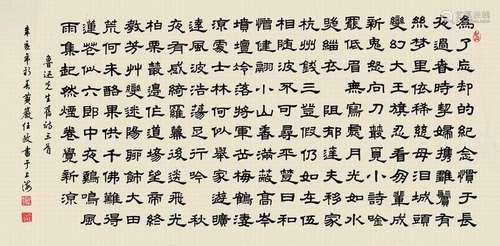 為了忘却的紀念慣于長
夜過春時挈婦攜雛鬢有
絲夢里依稀慈母泪城頭
變幻大王旗忍看朋輩成
新鬼怒向刀叢覓小詩吟
罷低眉無寫處月光如水
照緇衣 阻郁達夫移家
杭州錢王登遐仍如在伍
相隨波不可尋平楚日和
憎健翮小山香滿蔽高岑
墳壇冷落將軍岳梅鶴淒
涼處士林何似舉家游曠
遠風波浩蕩足行吟 秋
夜有感綺羅幕後送飛光
柏栗叢邊作道場望帝終
教芳草變迷陽聊飾大田
荒何來酪果供千佛難得
蓮花似六郎中夜鷄鳴風
雨集起然煙卷覺新涼
魯迅先生舊詩三首
辛亥年初春黃嚴任政書于上海